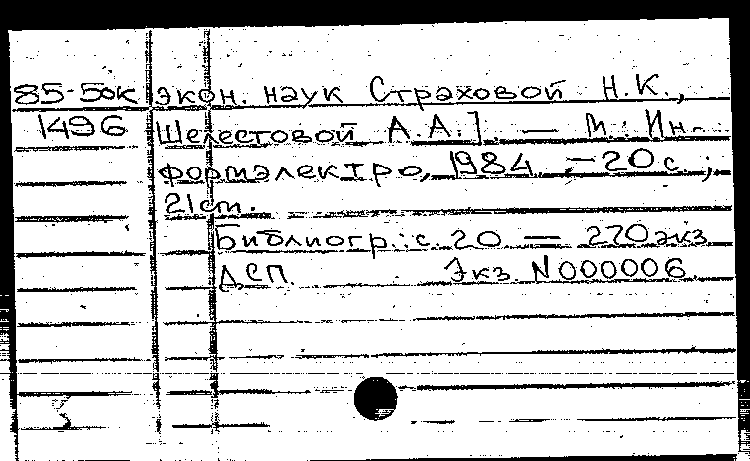 85-5ок экон. наук Страховой Н.К.,
1496 Шелестовой А.А.]. — М.: Ин-
формэлектро, 1984. — 20 с.;
21 см.
Библиогр.: с. 20 — 270 экз.
ДСП. Экз. N000006.